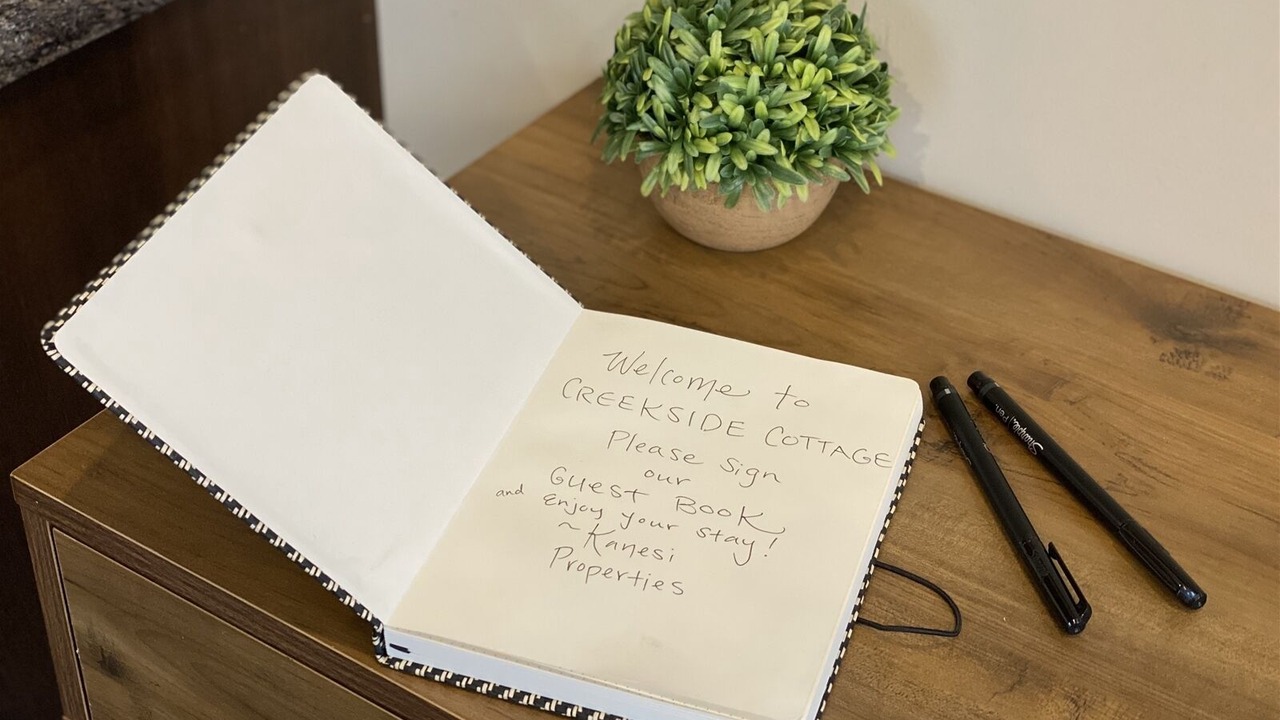 Welcome to
CREEKSIDE COTTAGE
Please sign
our
GUEST BOOK
and Enjoy your stay!
~ Kanesi
Properties
Sharpie Pen.